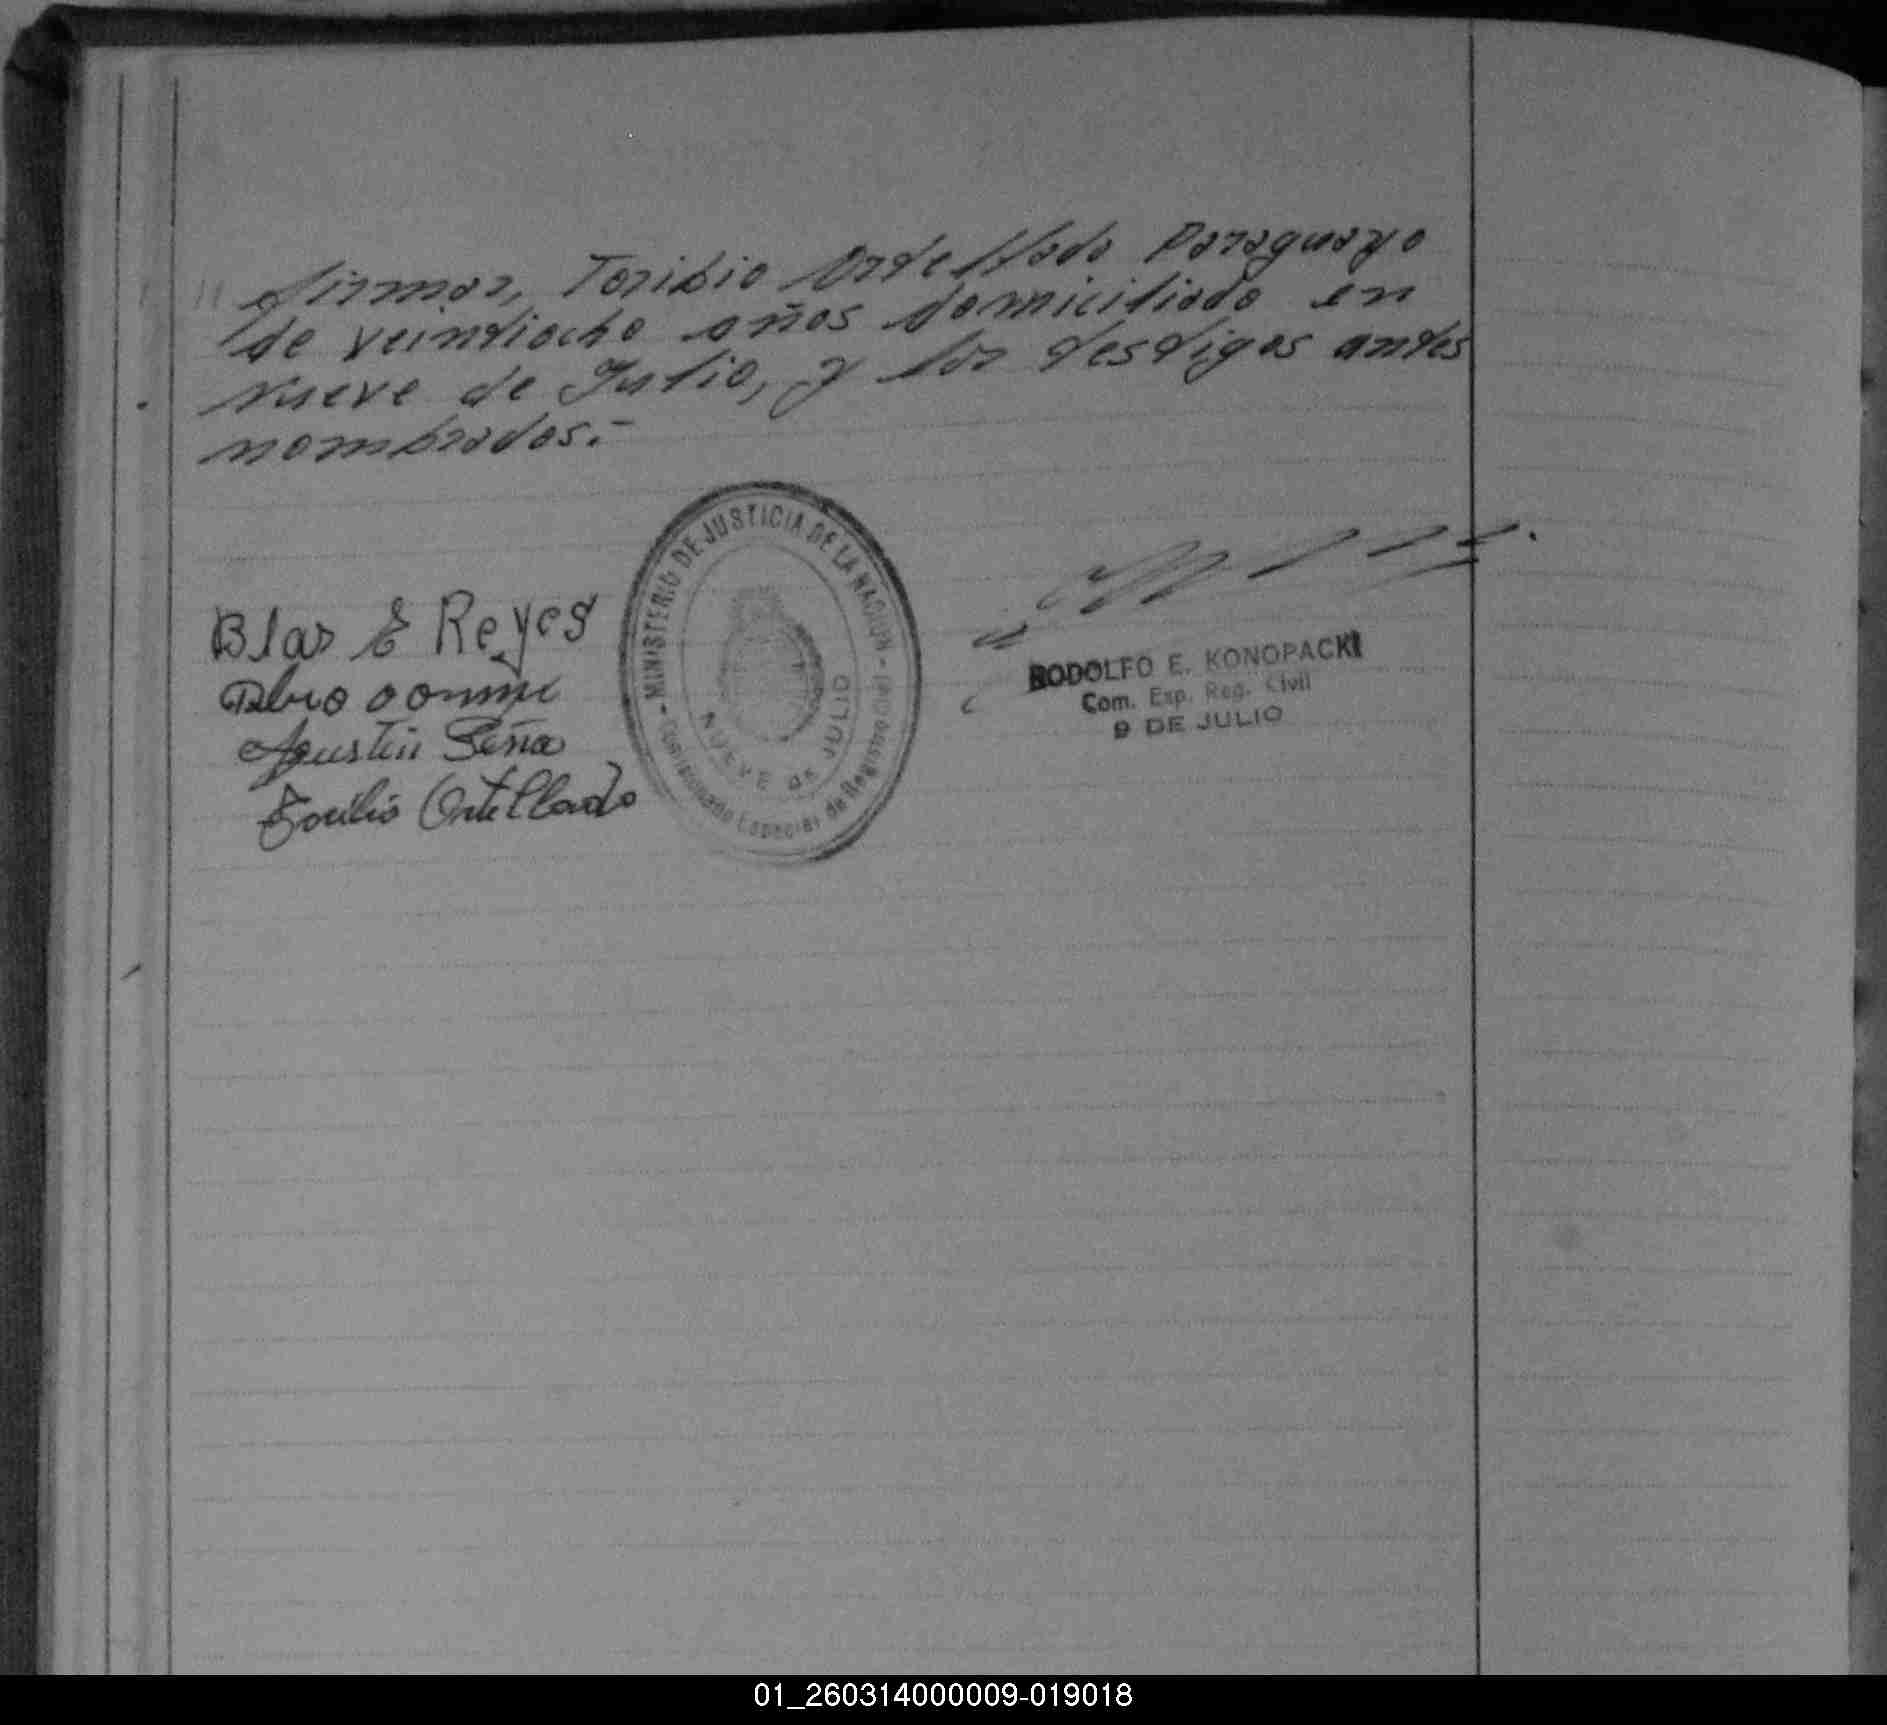 // firmar, Toribio Ortellado Paraguayo
de veintiocho años domiciliado en
Nueve de Julio, y los testigos antes
nombrados.-
MINISTERIO DE JUSTICIA DE LA NACION
Comisionado Especial de Registro Civil
NUEVE de JULIO
Blas E Reyes
Agustin Peña
Toribio Ortellado
RODOLFO E. KONOPACKI
Com. Esp. Reg. Civil
9 DE JULIO
01_260314000009-019018